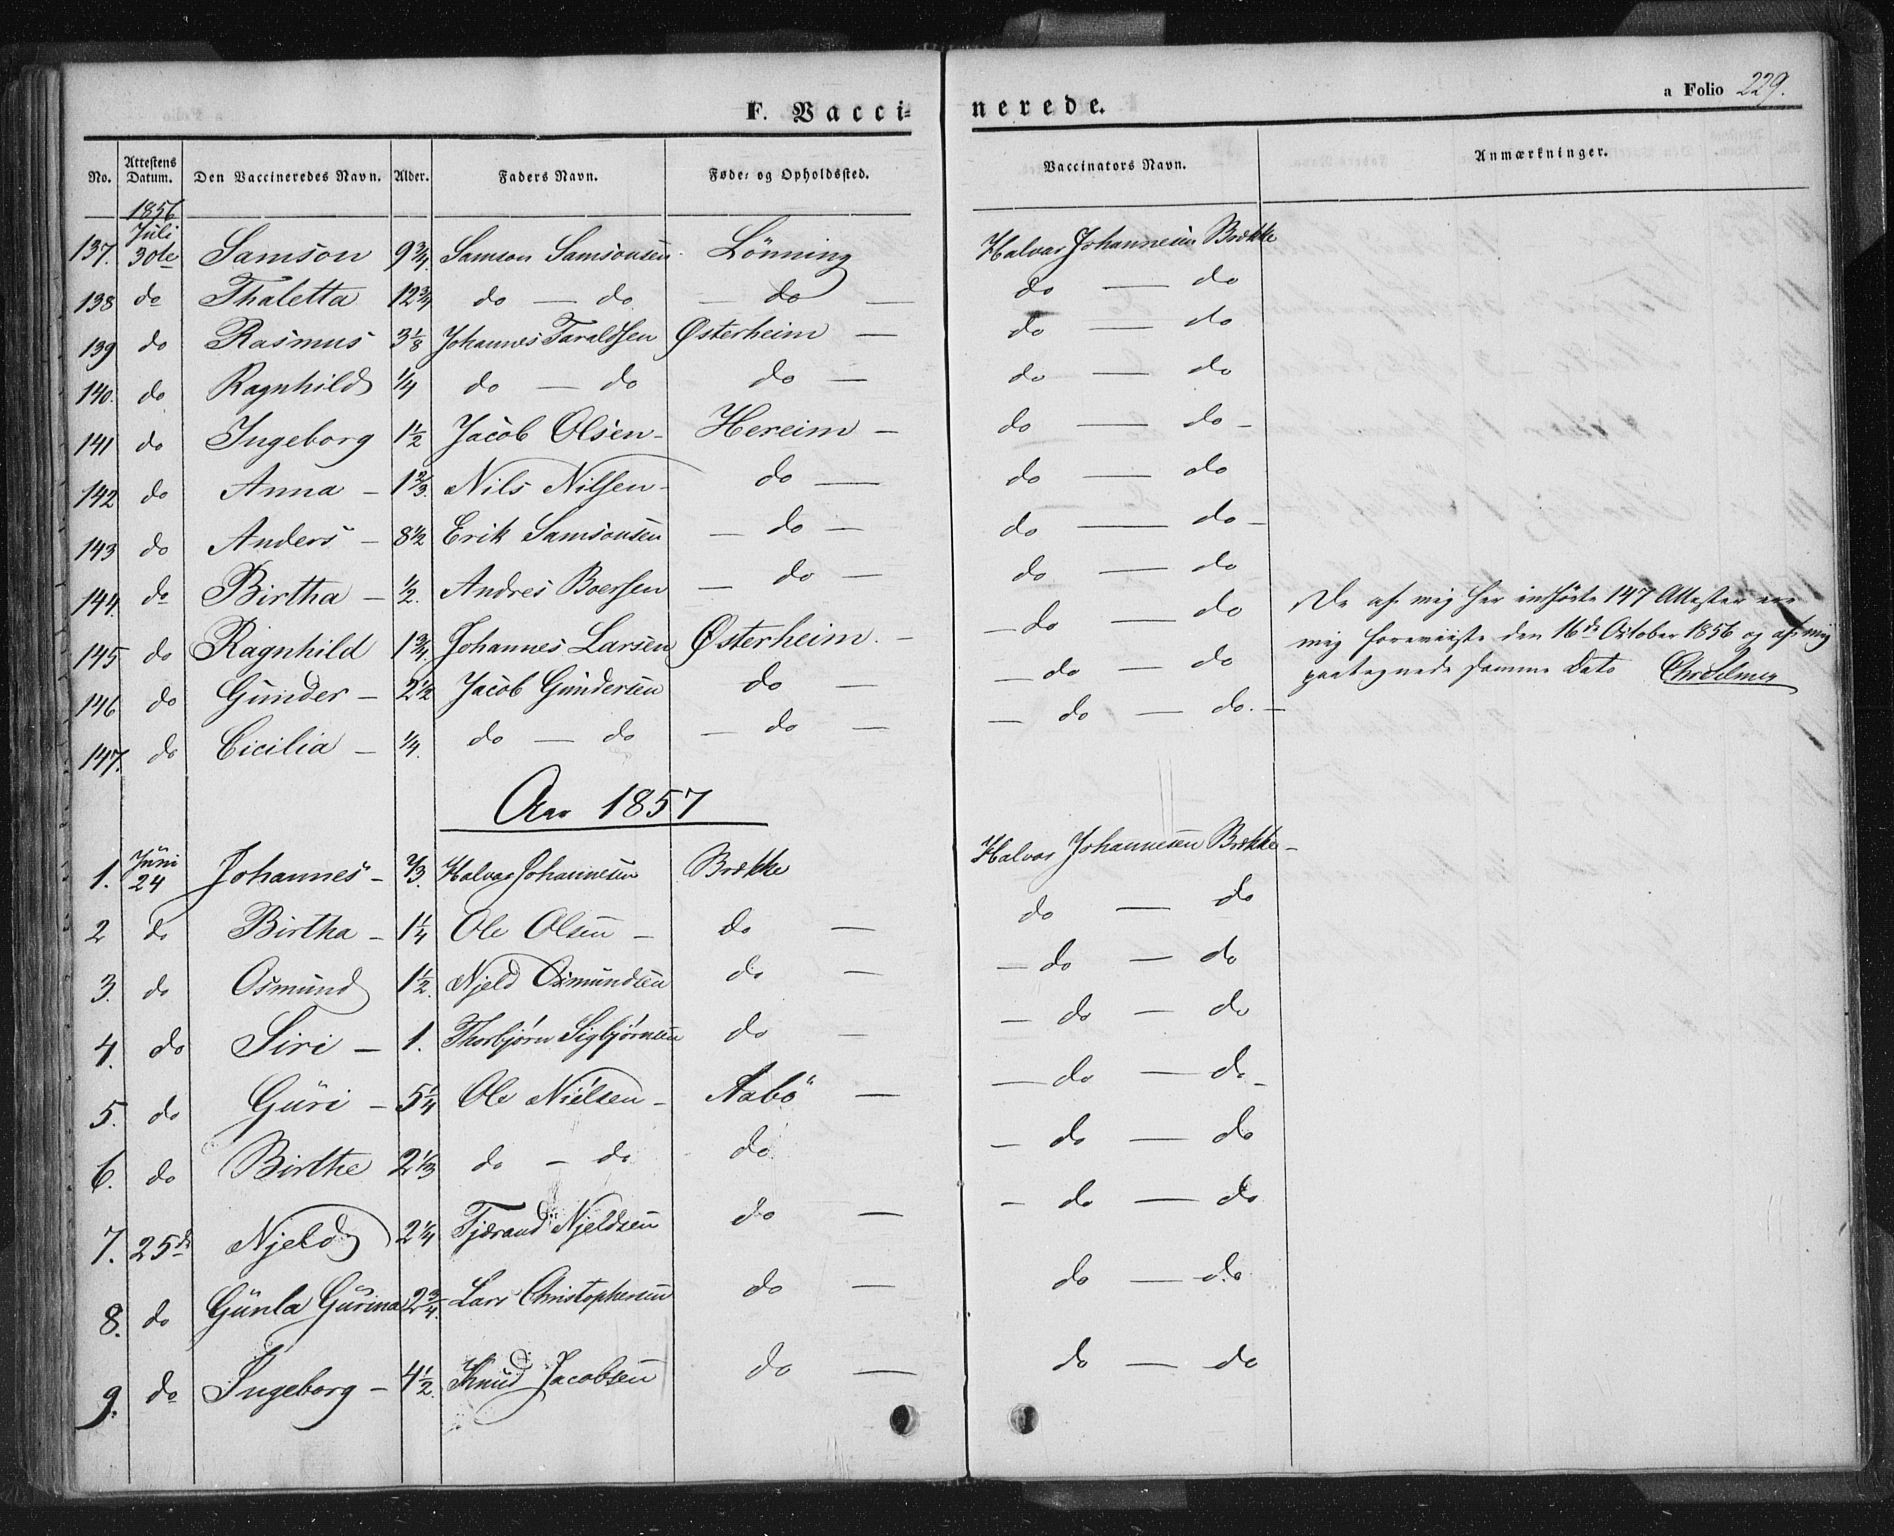 a Folio 229.
F. Vaccinerede.
No. Attestens Datum. Den Vaccineredes Navn. Alder. Faders Navn. Føde- og Opholdssted. Vaccinators Navn. Anmærkninger.
1856
137. Juli 30te Samson 9 3/4 Samson Samsonsen Lönning Halvor Johannesen Brække
138 do Thaletta 12 3/4 do — do — do — do — do
139 do Rasmus 3 1/8 Johannes Taraldsen Østerheim — do — do
140. do Ragnhild 1/4 do — do do — do — do
141 do Ingeborg 1 1/2 Jacob Olsen - Hereim — do — do -
142 do Anna — 1 2/3. Nils Nilsen - do — do — do
143 do Anders — 8 1/2 Erik Samsonsen — do — do — do -
144. do Birtha — 1/2. Andres Boersen — do — do — do
145 do Ragnhild 1 3/4 Johannes Larsen Østerheim. - — do — do
146 do Gunder — 2 1/2 Jacob Gundersen do — — do — do
147. do Cicilia — 1/4. do — do — do — — do — do. -
De af mig her indförte 147 Attester ere
mig foreviiste den 16de October 1856 og af mig
paategnede samme Dato
Aar 1857
1. Juni 24 Johannes - 2/3. Halvor Johannesen Brække Halvor Johannesen Brække -
2 do Birtha - 1 1/4 Ole Olsen — do — do — do
3. do Osmund 1 1/2. Njeld Osmundsen do — — do — do
4. do Siri — 1. Thorbjørn Sigbjørnsen do — — do — do
5. do Guri - 5 1/4 Ole Nielsen - Aabö — — do — do -
6. do Birthe 2 1/3 do — do do - do — do
7. 25de Njeld 2 1/4 Tjærand Njeldsen do — - do — do
8. do Gunla Gurina 2 3/4. Lars Christophersen do — do — do
9. do Ingeborg - 4 1/2. Knud Jacobsen do — do — do